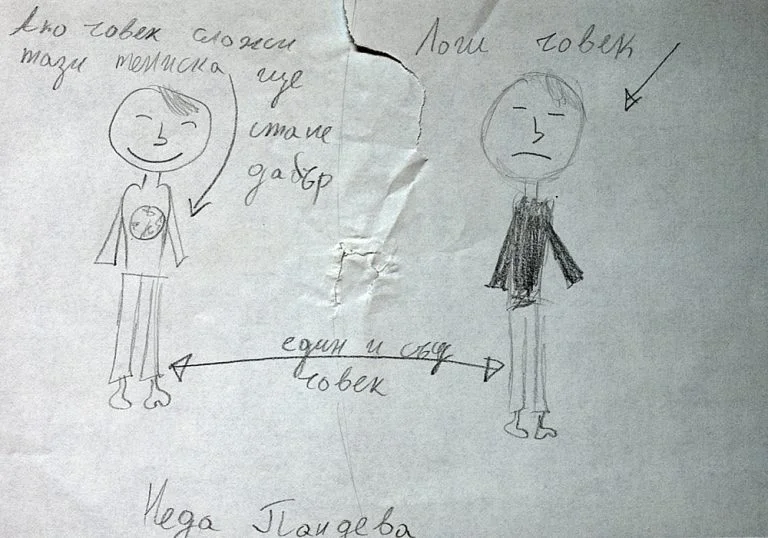 Ако човек сложи
тази тениска ще
стане
дабър
Лош човек
един и същ
човек
Неда Пандева